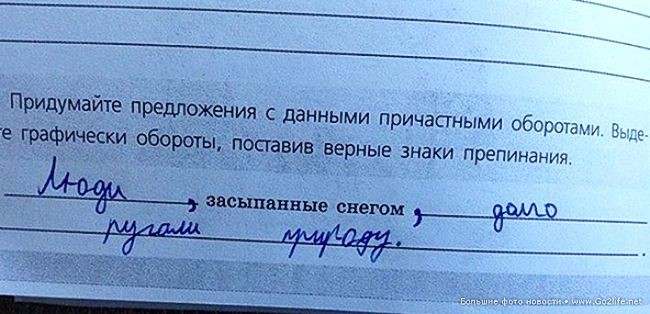 Придумайте предложения с данными причастными оборотами. Выде-
те графически обороты, поставив верные знаки препинания.
Люди, засыпанные снегом, долго
ругали природу.
Большие фото новости • www.Go2life.net